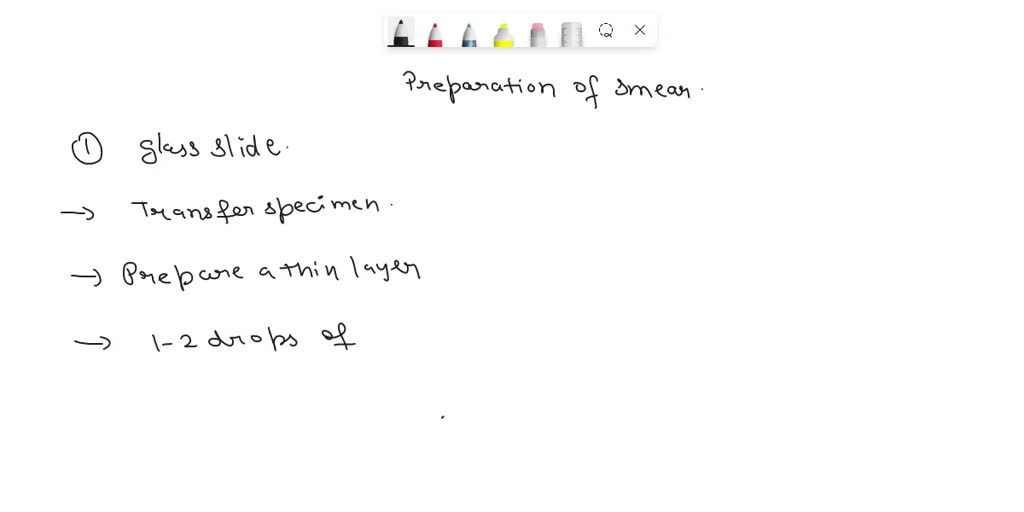 Preparation of smear.
① glass slide.
→ Transfer specimen.
→ Prepare a thin layer
→ 1-2 drops of